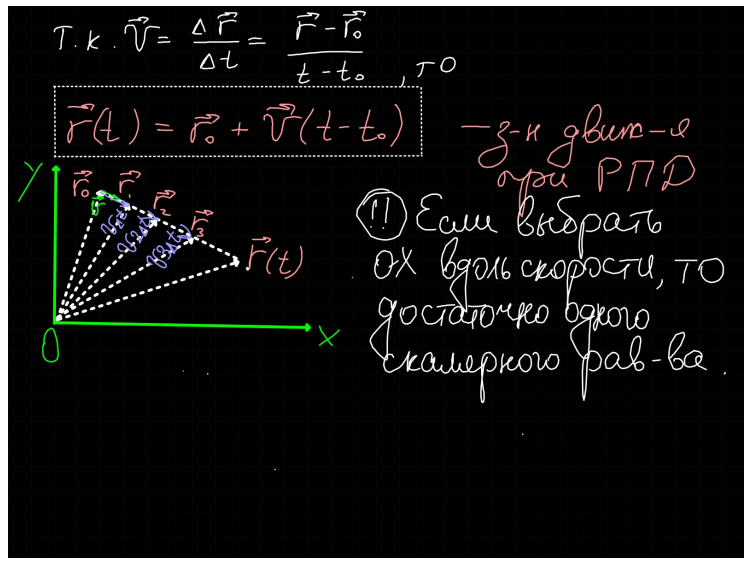 Т.к. V⃗ = Δr⃗/Δt = (r⃗ - r⃗₀)/(t - t₀), то
r⃗(t) = r⃗₀ + V⃗(t - t₀)
- з-н движ-я
при РПД
y
r⃗₀ r⃗₁ r⃗₂ r⃗₃ r⃗(t)
0
x
!! Если выбрать
ОХ вдоль скорости, то
достаточно одного
скалярного рав-ва.